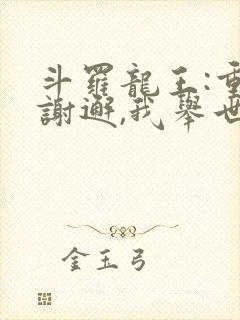 斗羅龍王:重
謝邂,我舉世
金玉弓